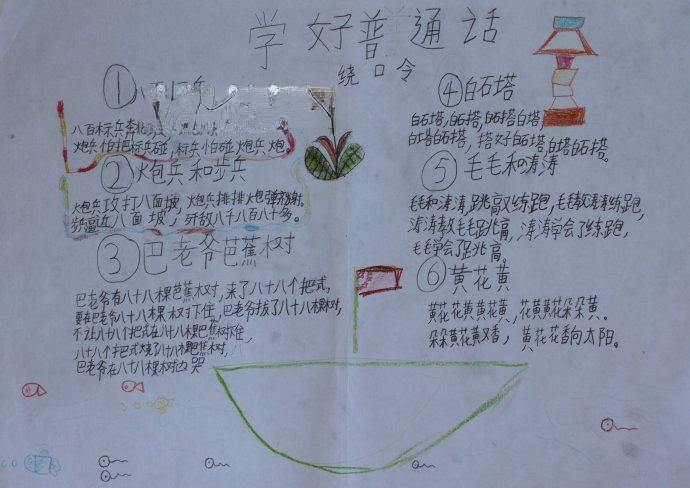 学好普通话
绕口令
① 八 兵
八百标兵奔北
炮兵怕把标兵碰,标兵怕碰炮兵炮。
② 炮兵和步兵
炮兵攻打八面坡,炮兵排排炮弹
逼近八面坡,歼敌八千八百八十多。
③ 巴老爷芭蕉树
巴老爷有八十八棵芭蕉树,来了八十八个把式,
要在巴老爷八十八棵树下住,巴老爷拔了八十八棵树,
不让八十八个把式在八十八棵芭蕉树住,
八十八个把式烧了八十八棵芭蕉树,
巴老爷在八十八棵树边哭
④ 白石塔
白石塔,白石搭,白石搭白塔,
白塔白石搭,搭好白石塔,白塔白石塔。
⑤ 毛毛和涛涛
毛毛和涛涛,跳高又练跑,毛毛教涛涛练跑,
涛涛教毛毛跳高,涛涛学会了练跑,
毛毛学会了跳高。
⑥ 黄花黄
黄花花黄黄花黄,花黄黄花朵朵黄。
朵朵黄花黄又香,黄花花香向太阳。